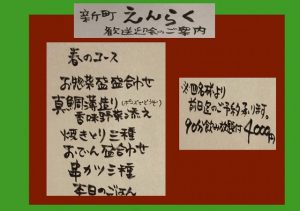 新町 えんらく
歓送迎会のご案内
春のコース
お惣菜盛合わせ
真鯛薄造り(ポン酢でどうぞ)
香味野菜を添え
焼きとり三種
おでん盛合わせ
串カツ三種
本日のごはん
※四名様より
前日迄のご予約承ります。
90分飲み放題付
4,000円